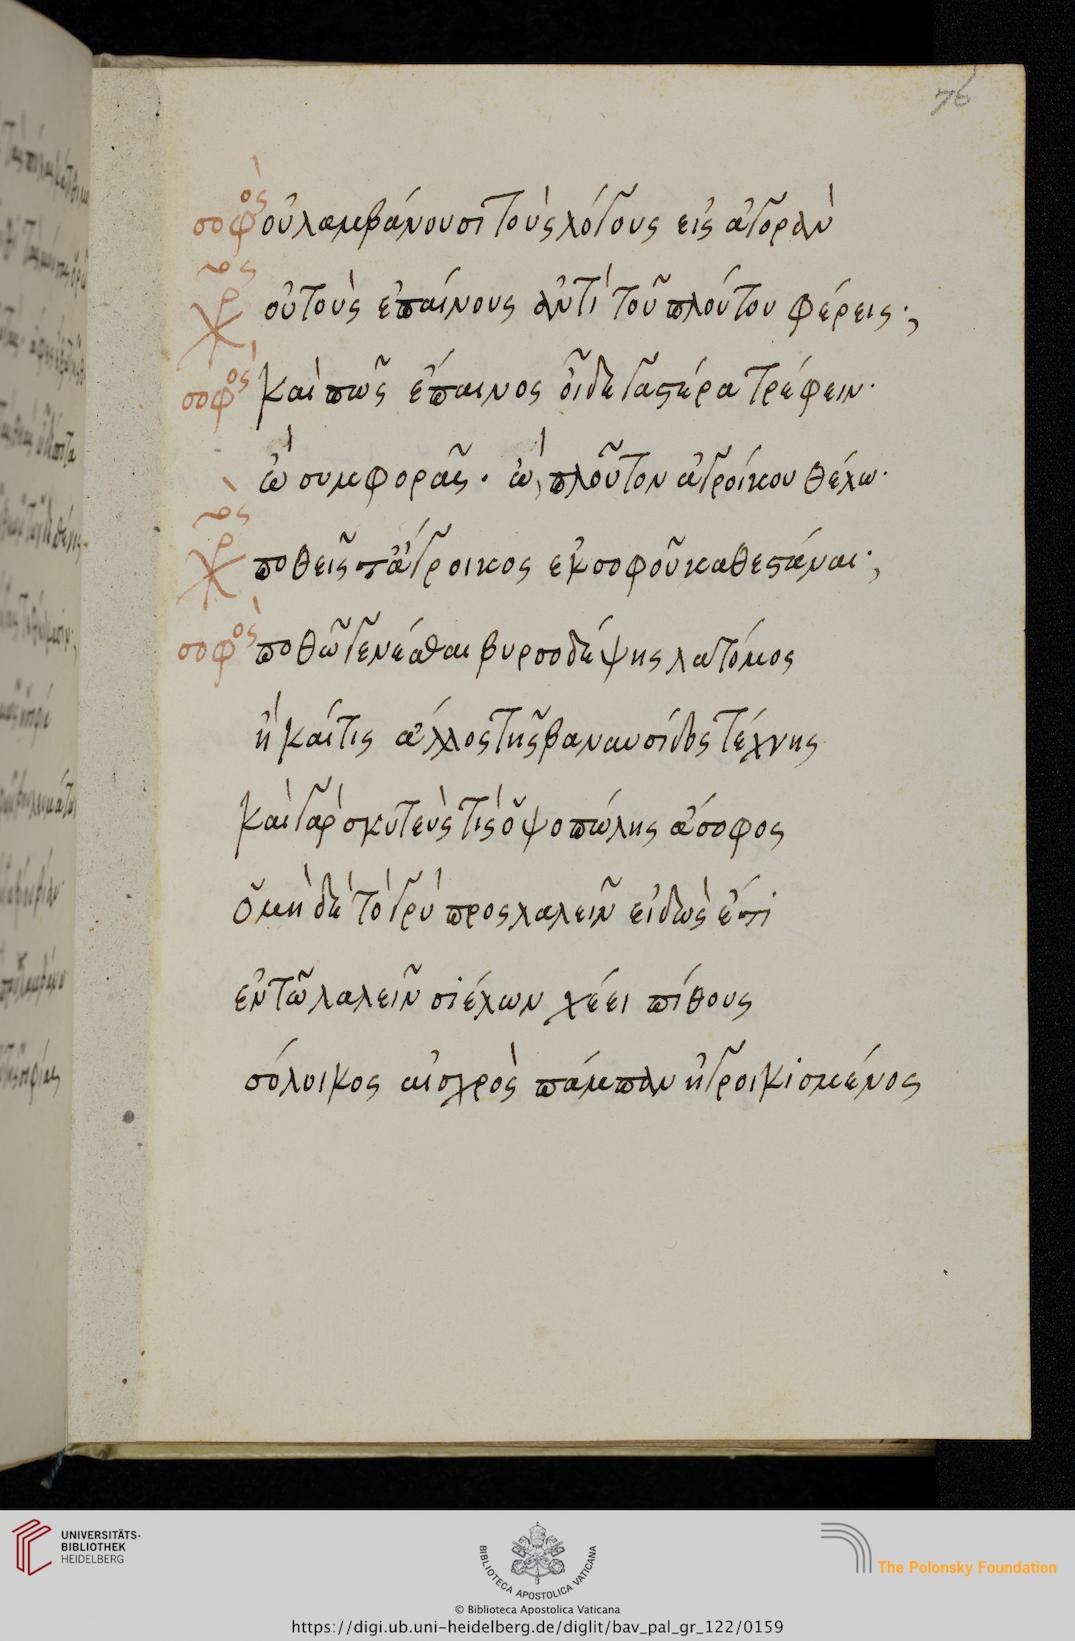 76
σοφὸς οὐ λαμβάνουσι τοὺς λόγους εἰς ἀγορὰν
χρ οὐ τοὺς ἐπαίνους ἀντὶ τοῦ πλούτου φέρεις·,
σοφὸς καὶ πῶς ἔπαινος οἶδε γαστέρα τρέφειν·
ὢ συμφορᾶς· ὢ, πλοῦτον ἀγροίκου θέλω·
χρ ποθεῖς ἄγροικος ἐκ σοφοῦ καθεστάναι·,
σοφὸς ποθῶ γενέσθαι βυρσοδέψης λατόμος
ἢ καί τις ἄλλος τῆς βαναυσίδος τέχνης
καὶ γὰρ σκυτεὺς τίς ὀψοπώλης ἄσοφος
ὁ μὴ δὲ τὸ γρὺ προσλαλεῖν εἰδὼς ἔτι
ἐν τῶ λαλεῖν σιέλων χέει πίθους
σόλοικος αἰσχρὸς πάμπαν ἠγροικισμένος
UNIVERSITÄTS-
BIBLIOTHEK
HEIDELBERG
BIBLIOTECA APOSTOLICA VATICANA
The Polonsky Foundation
© Biblioteca Apostolica Vaticana
https://digi.ub.uni-heidelberg.de/diglit/bav_pal_gr_122/0159